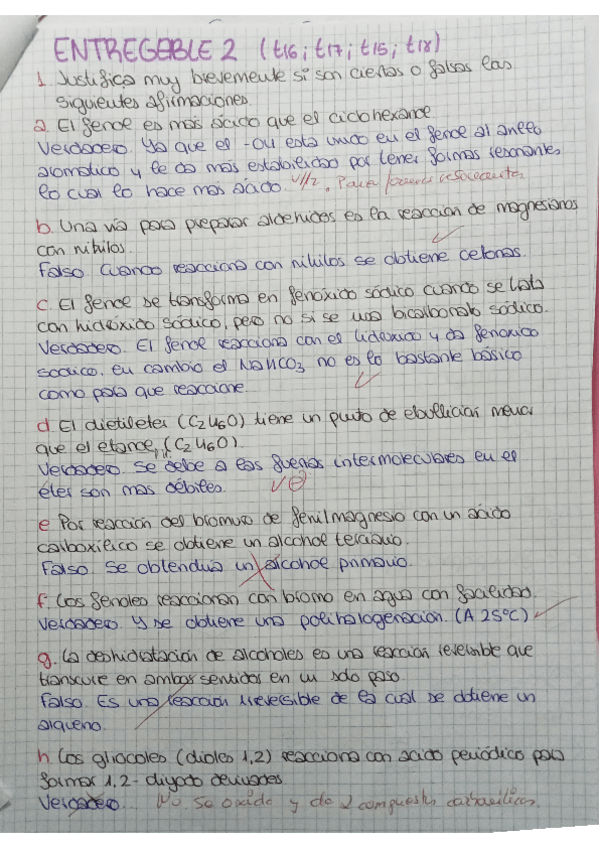 ENTREGABLE 2 (t16; t17; t15; t18)
1. Justifica muy brevemente si son ciertas o falsas las
siguientes afirmaciones.
a. El fenol es más ácido que el ciclohexanol
Verdadero. Ya que el -OH está unido en el fenol al anillo
aromático y le da más estabilidad por tener formas resonantes,
lo cual lo hace más ácido. V/2. resonantes
b. Una vía para preparar aldehídos es la reacción de magnesianos
con nitrilos.
Falso. Cuando reacciona con nitilos se obtiene cetonas.
c. El fenol se transforma en fenóxido sódico cuando se trata
con hidróxido sódico, pero no si se usa bicarbonato sódico.
Verdadero. El fenol reacciona con el hidróxido y da fenoxido
sódico, en cambio el NaHCO3 no es lo bastante básico
como para que reaccione.
d. El dietileter (C2H6O) tiene un punto de ebullición menor
que el etanol (C2H6O).
Verdadero. Se debe a las fuerzas intermoleculares en el
éter son mas débiles.
e. Por reacción del bromuro de fenilmagnesio con un ácido
carboxílico se obtiene un alcohol terciario.
Falso. Se obtendría un alcohol primario.
f. Los fenoles reaccionan con bromo en agua con facilidad.
Verdadero. Y se obtiene una polihalogenación. (A 25ºC)
g. La deshidratación de alcoholes es una reacción reversible que
transcurre en ambos sentidos en un solo paso.
Falso. Es una reacción irreversible de la cual se obtiene un
alqueno.
h. Los glicoles (dioles 1,2) reacciona con acido periódico para
formar 1,2-diyodo derivados
Verdadero. No. Se oxida y da 2 compuestos carbonílicos.